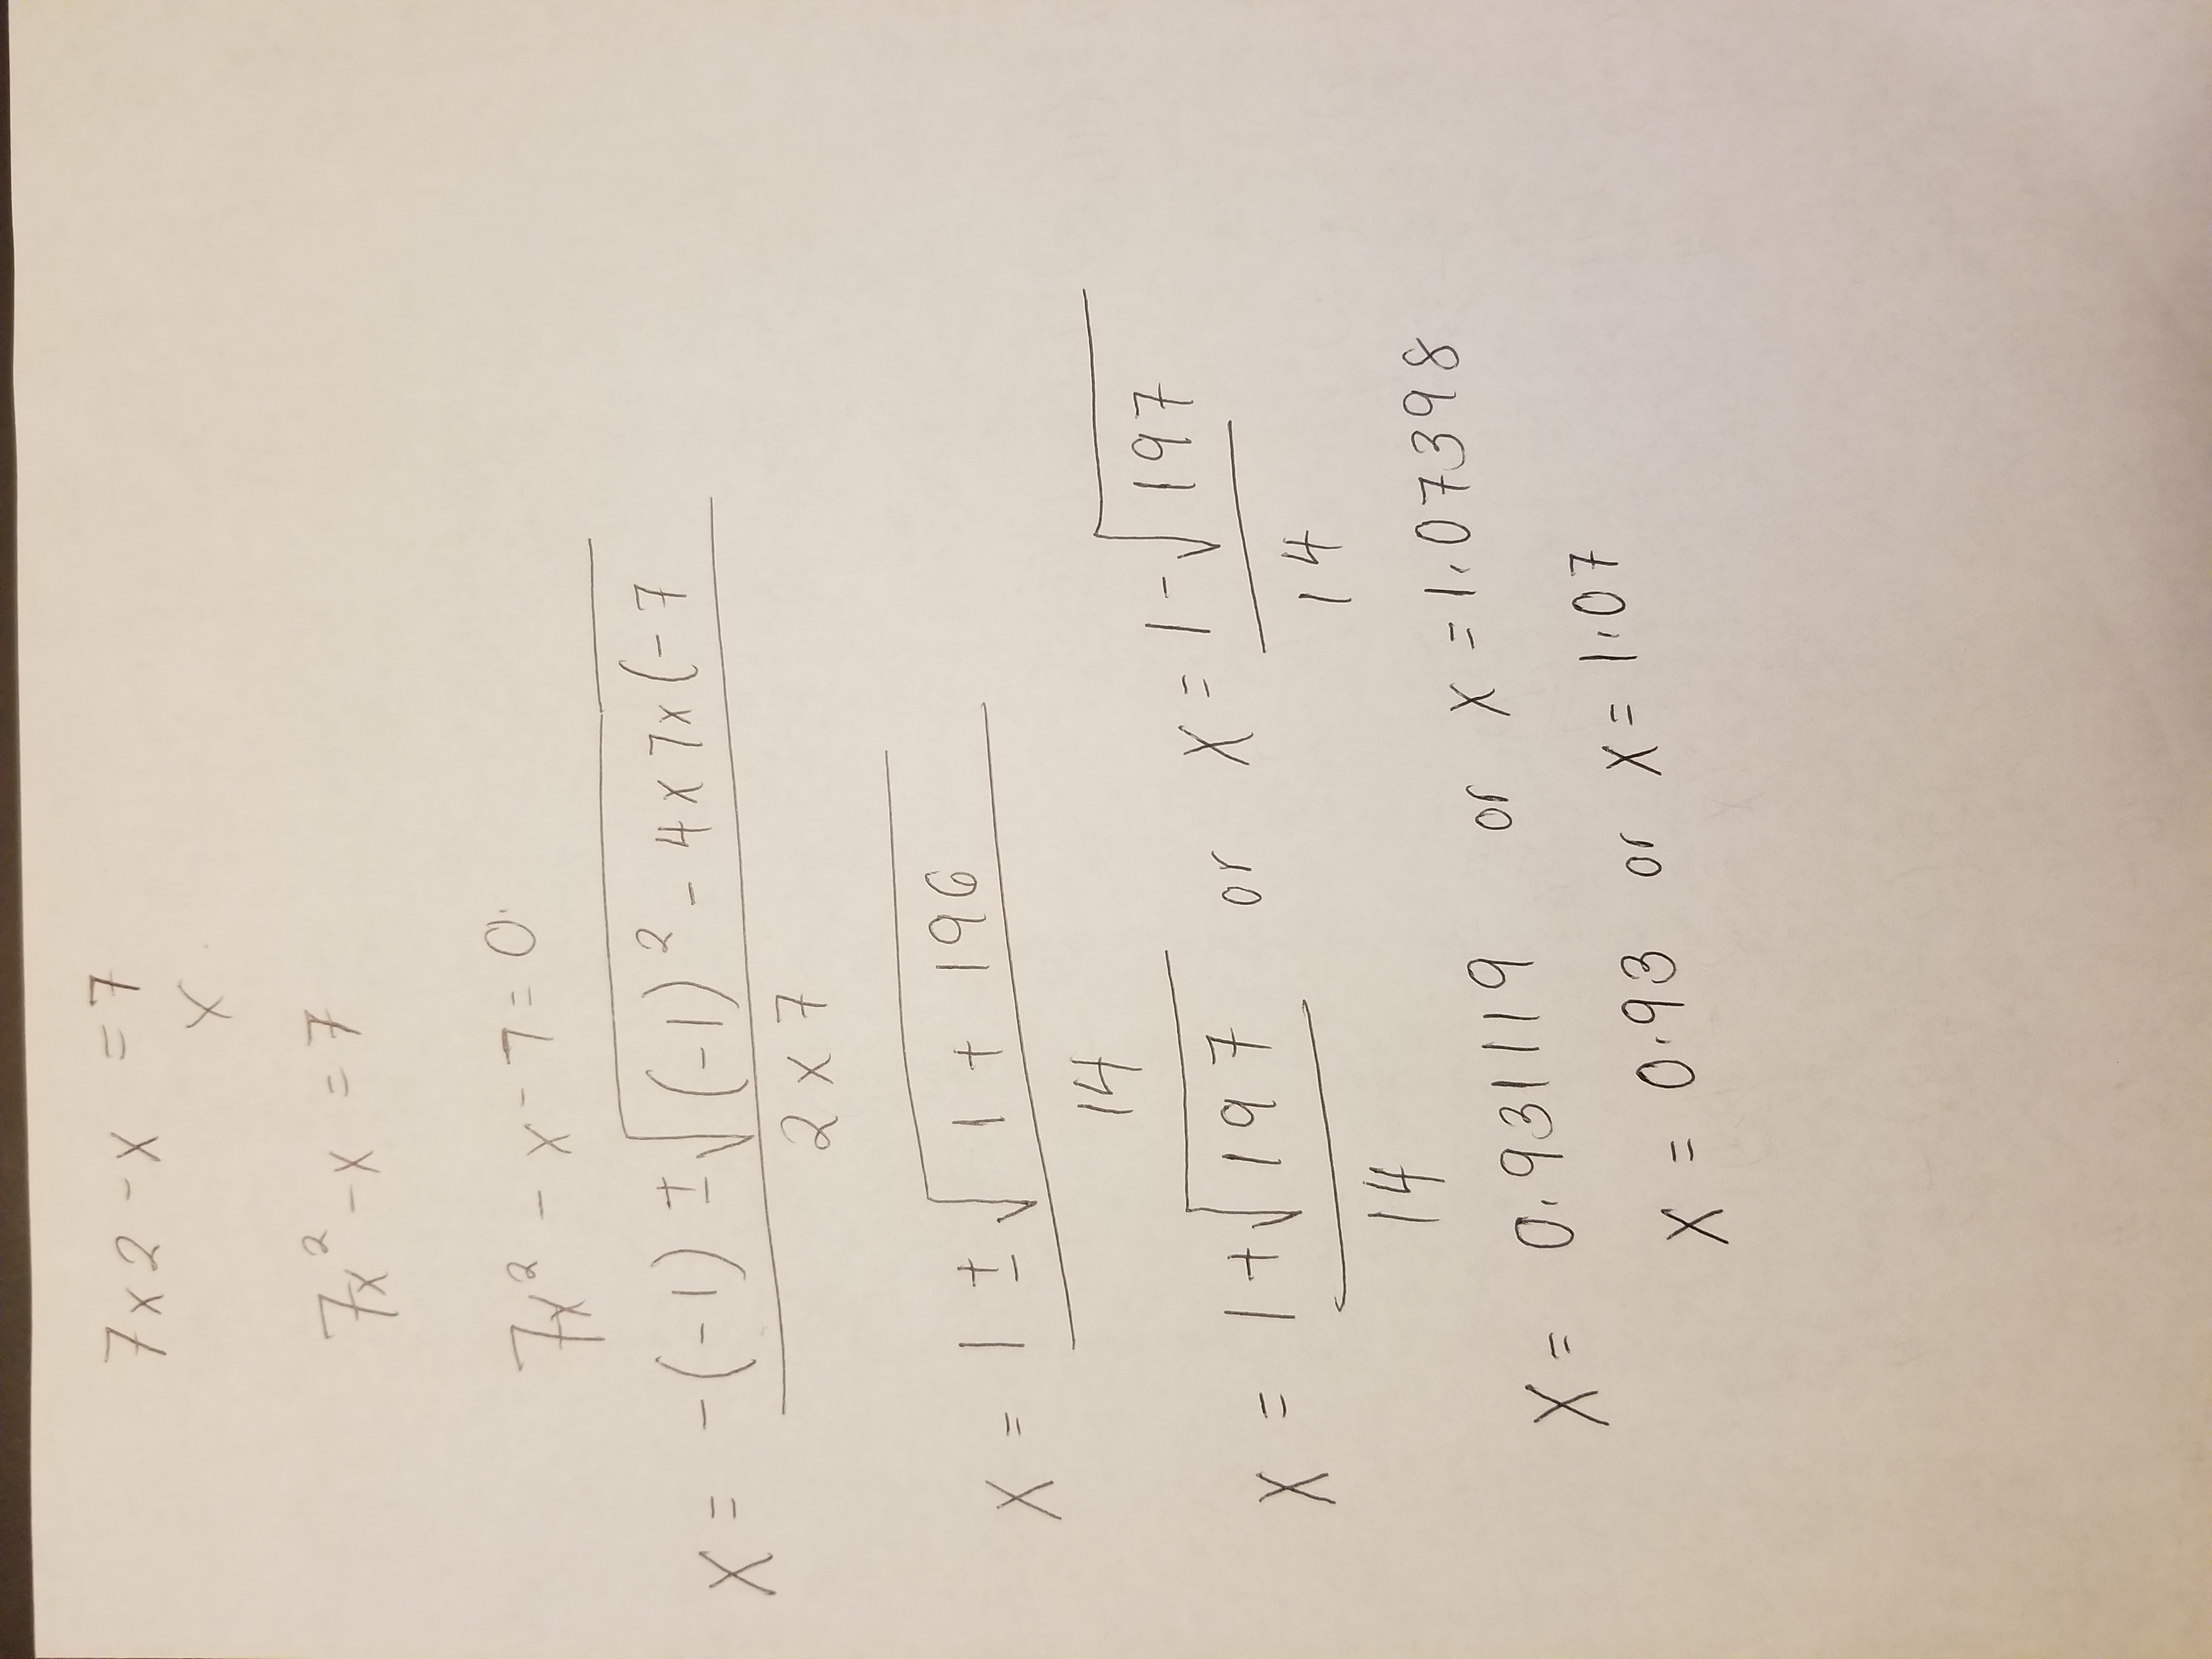 7x2 - x = 7
x
7x² - x = 7
7x² - x - 7 = 0
x = -(-1) ± √(-1)² - 4x7x(-7
2 x 7
x = 1 ± √1 + 196
14
x = 1 + √197 or x = 1 - √197
14 14
x = 0.931119 or x = 1.07398
x = 0.93 or x = 1.07